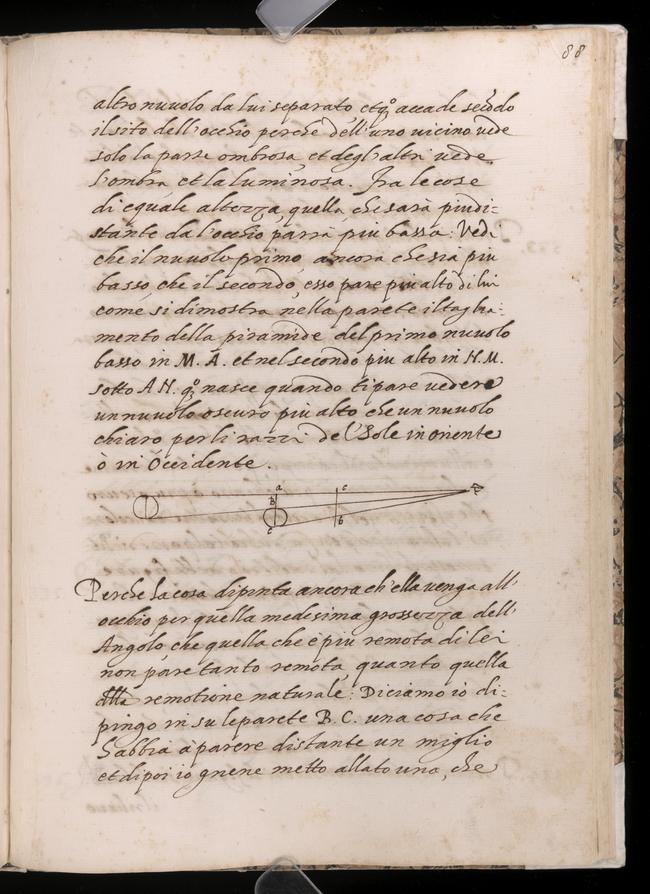 88
altro nuuolo da lui separato, et q.º accade secōdo
il sito dell'occhio perche dell'uno uicino uede
solo la parte ombrosa, et degl'altri uede
l'ombra et la luminosa. Fra le cose
di equale altezza, quella, che sara piu di-
stante da l'occhio parrà piu bassa: Vedi
che il nuuolo primo, ancora che sia piu
basso, che il secondo, esso pare piu alto di lui
come si dimostra nella parete il tagla-
mento della piramide del primo nuuolo
basso in M. A. et nel secondo piu alto in N. M.
sotto A N. q.º nasce quando ti pare uedere
un nuuolo oscuro piu alto che un nuuolo
chiaro per li razzi de l'Sole in oriente
ò in Occidente.
a c
B
c b
Perche la cosa dipinta ancora ch'ella uenga all'
occhio per quella medesima grossezza dell'
Angolo, che quella che è piu remota di lei
non pare tanto remota, quanto quella
della remotione naturale: Diciamo io di-
pingo in su le parete B. C. una cosa che
habbia a parere distante un miglio
et dipoi io gnene metto allato una, che